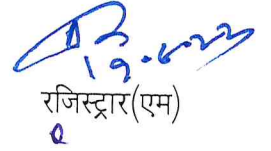 19.6.23
रजिस्ट्रार(एम)